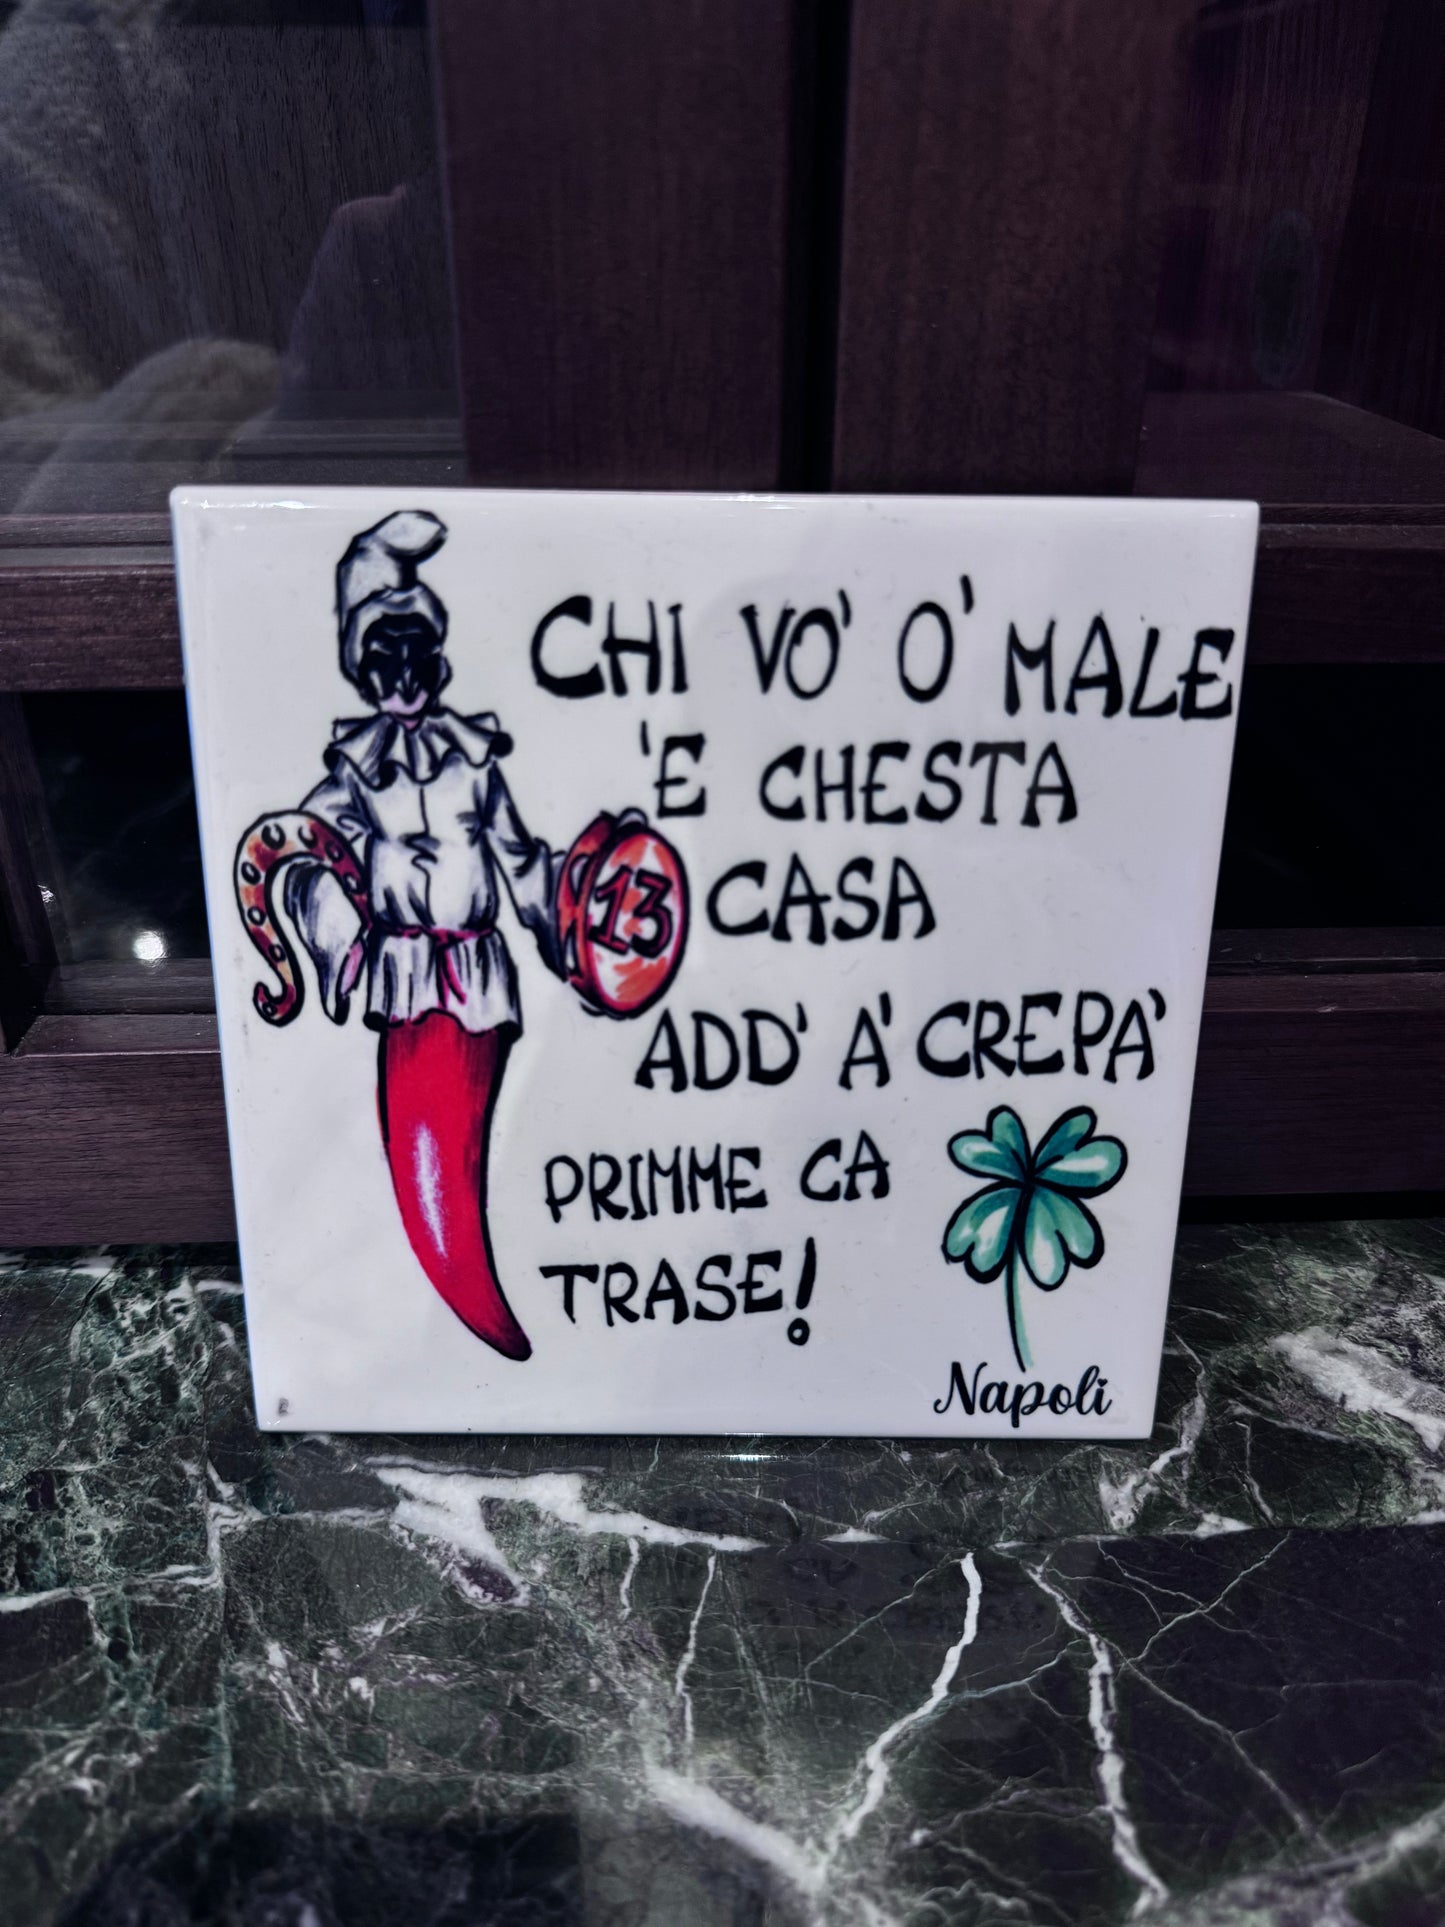 CHI VO' O' MALE
'E CHESTA
CASA
ADD' A' CREPA'
PRIMME CA
TRASE!
13
Napoli